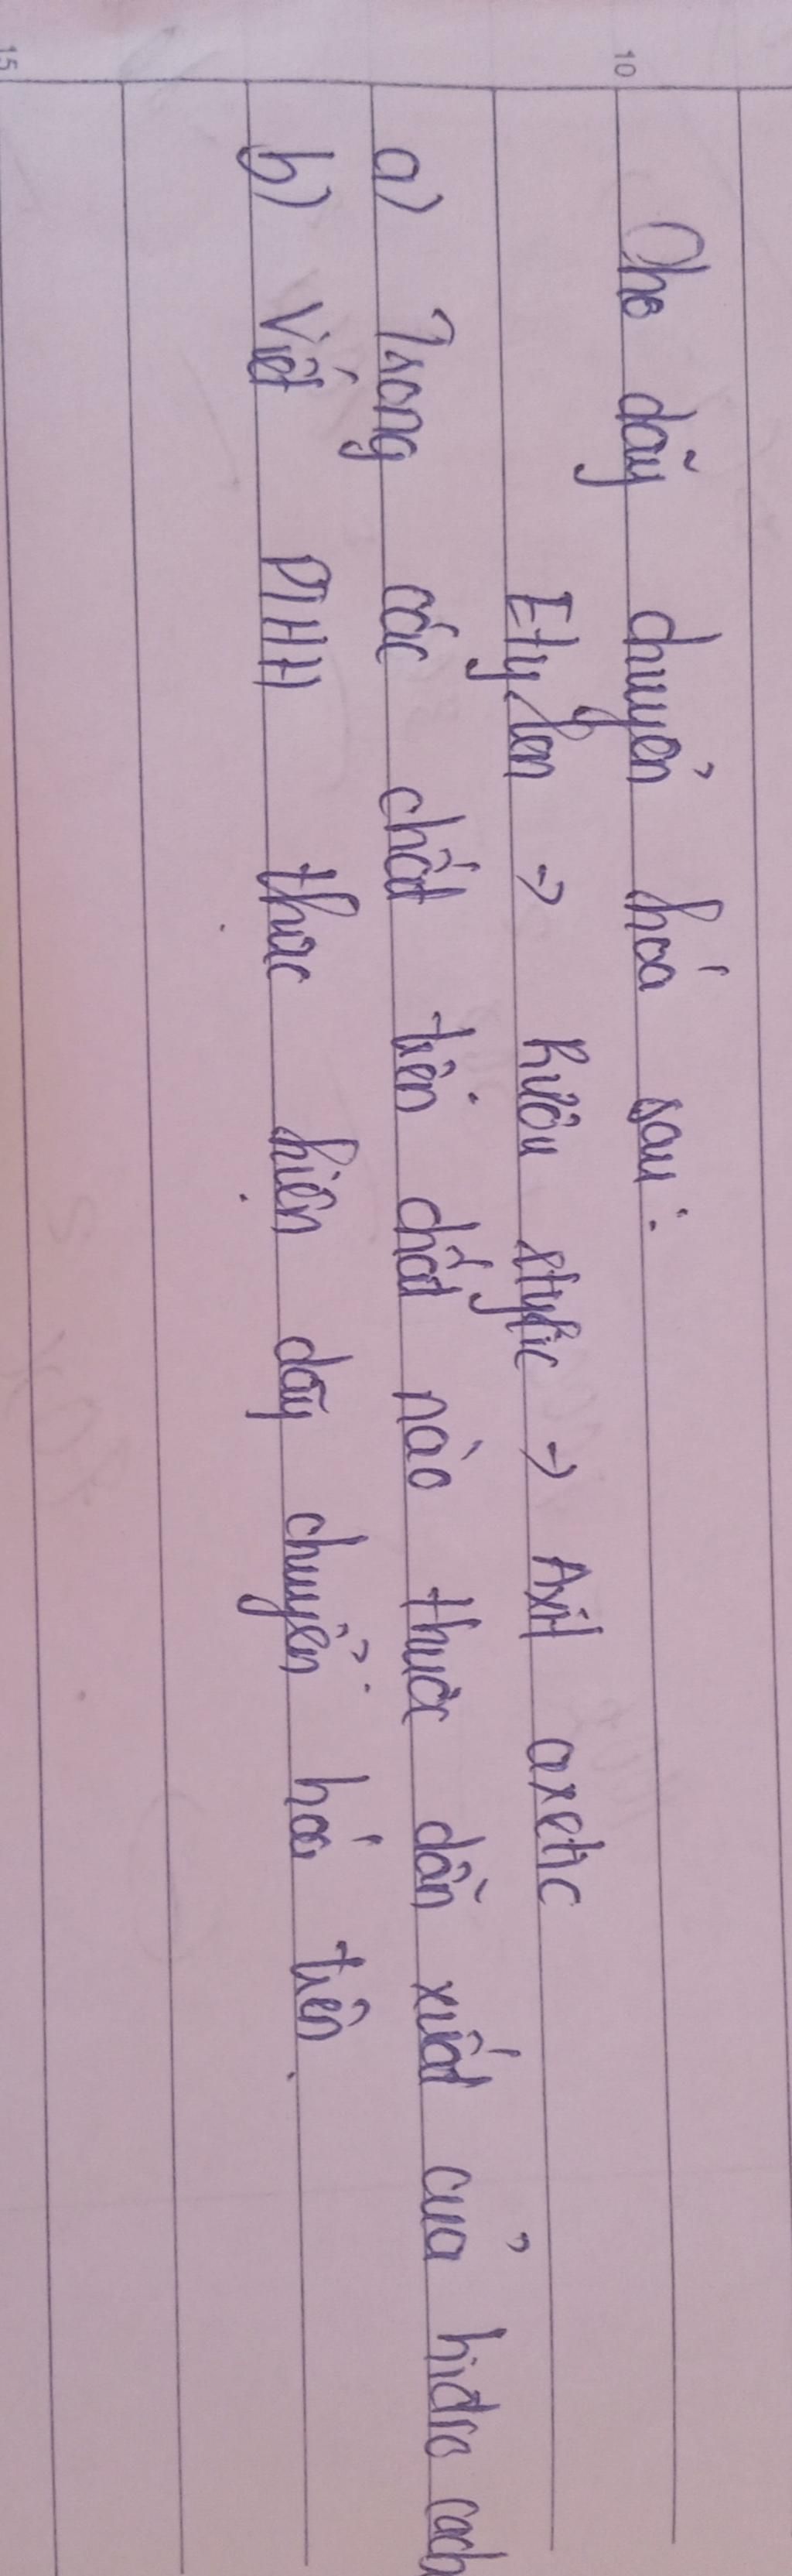 10
Cho dãy chuyển hoá sau:
Etylen → Rượu etylic → Axit axetic
a) Trong các chất trên chất nào thuộc dẫn xuất của hidro cacb
b) Viết PTHH thực hiện dãy chuyển hóa trên.
15